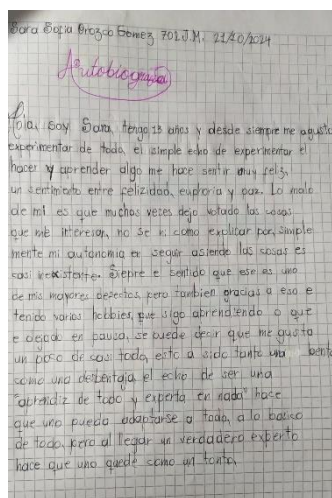 Sara Sofia Orozco Gomez 702 J.M. 21/10/2024
Autobiografia
Hola, soy Sara, tengo 13 años y desde siempre me a gustado
experimentar de todo, el simple echo de experimentar el
hacer y aprender algo me hace sentir muy feliz,
un sentimiento entre felizidad, euphoria y paz. Lo malo
de mi es que muchas veces dejo votado las cosas
que me interesan, no se ni como explicar por, simple
mente mi autonomia en seguir asiendo las cosas es
casi inexistente. Siepre e sentido que ese es uno
de mis mayores defectos, pero tanbien gracias a eso e
tenido varios hobbies, que sigo aprendiendo o que
e dejado en pausa, se puede decir que me gusta
un poco de casi todo, esto a sido tanto una benta
como una desbentaja, el echo de ser una
"aprendiz de todo y experta en nada" hace
que uno pueda adaptarse a todo, a lo basico
de todo, pero al llegar un verdadero experto
hace que uno quede como un tonto.